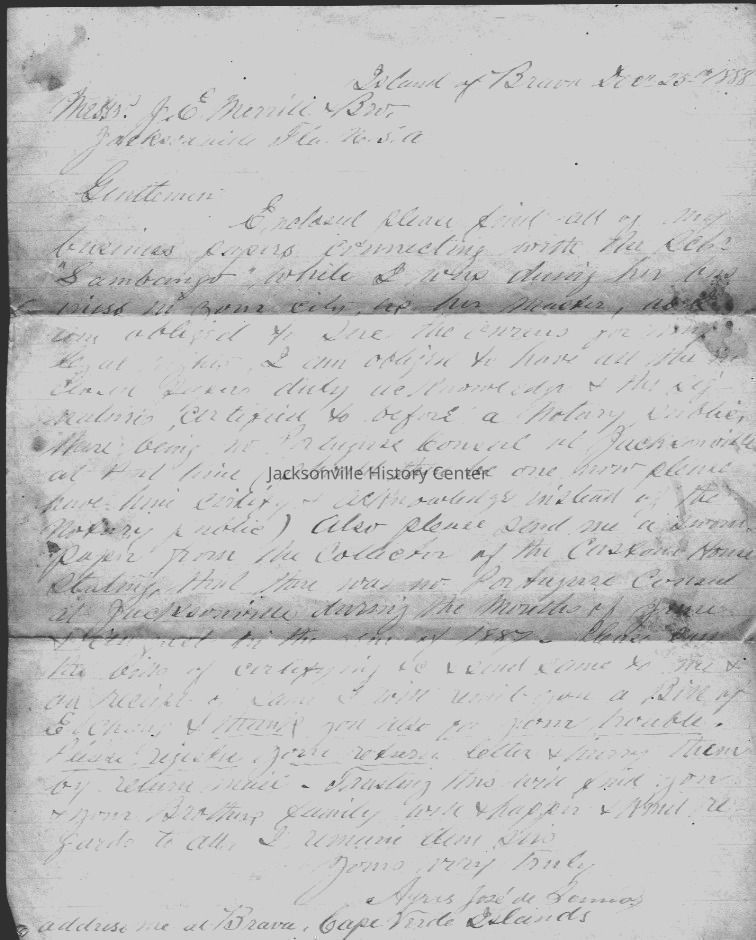 Island of Brava Dec 25th 1888
Messrs. J. E. Merrill & Bro,
Jacksonville Fla. U. S. A
Gentlemen
Enclosed please find all of my
business papers connecting with the Schr
"Sambango", while I was during her bus
iness in your city, as her Master, as I
am obliged to have the
legal I am obliged to have all the
closed papers duly acknowledge & the sig-
natures certified to before a Notary Public,
there being no Portuguese Consul at Jacksonville
at that time be one now please
have him certify & acknowledge instead of the
Notary public) Also please send me a sworn
paper from the Colector of the Custom House
stating that there was no Portuguese Consul
at Jacksonville during the Months of June
& August in the of 1887 - Please
the bill of certifying & send same to me &
on receipt of same I will remit you a Bill of
Exchang & thank you also for your trouble.
Please register your return letter & hurry them
by return mail - Trusting this will find you
& your Brothers family well & happy & kind re
gards to all, I remain dear Sirs
Yours very truly
José de
address me at Brava, Cape Verde Islands
Jacksonville History Center